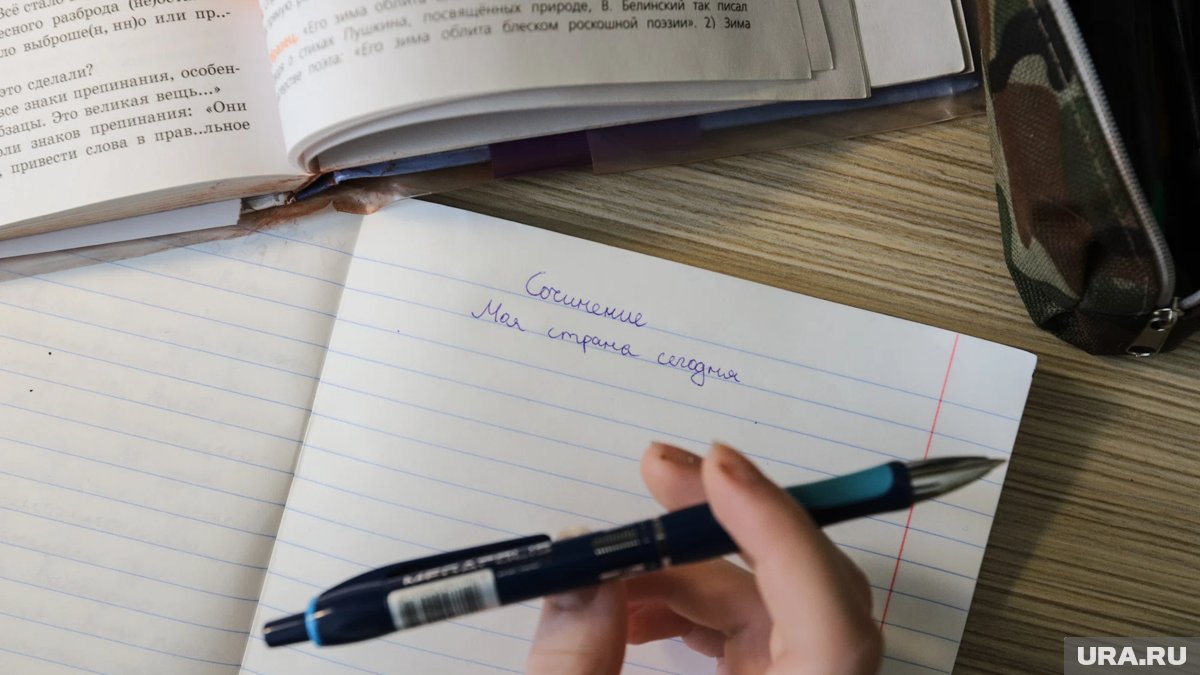 Всё стало
есного разброда (не)оста
ло выброше(н, нн)о или пр..-
это сделали?
все знаки препинания, особен-
бзацы. Это великая вещь...»
ли знаков препинания: «Они
, привести слова в прав..льное
«Его зима облита
посвящённых природе, В. Белинский так писал
о стихах Пушкина, «Его зима облита блеском роскошной поэзии». 2) Зима
поэта:
Сочинение
Моя страна сегодня
URA.RU